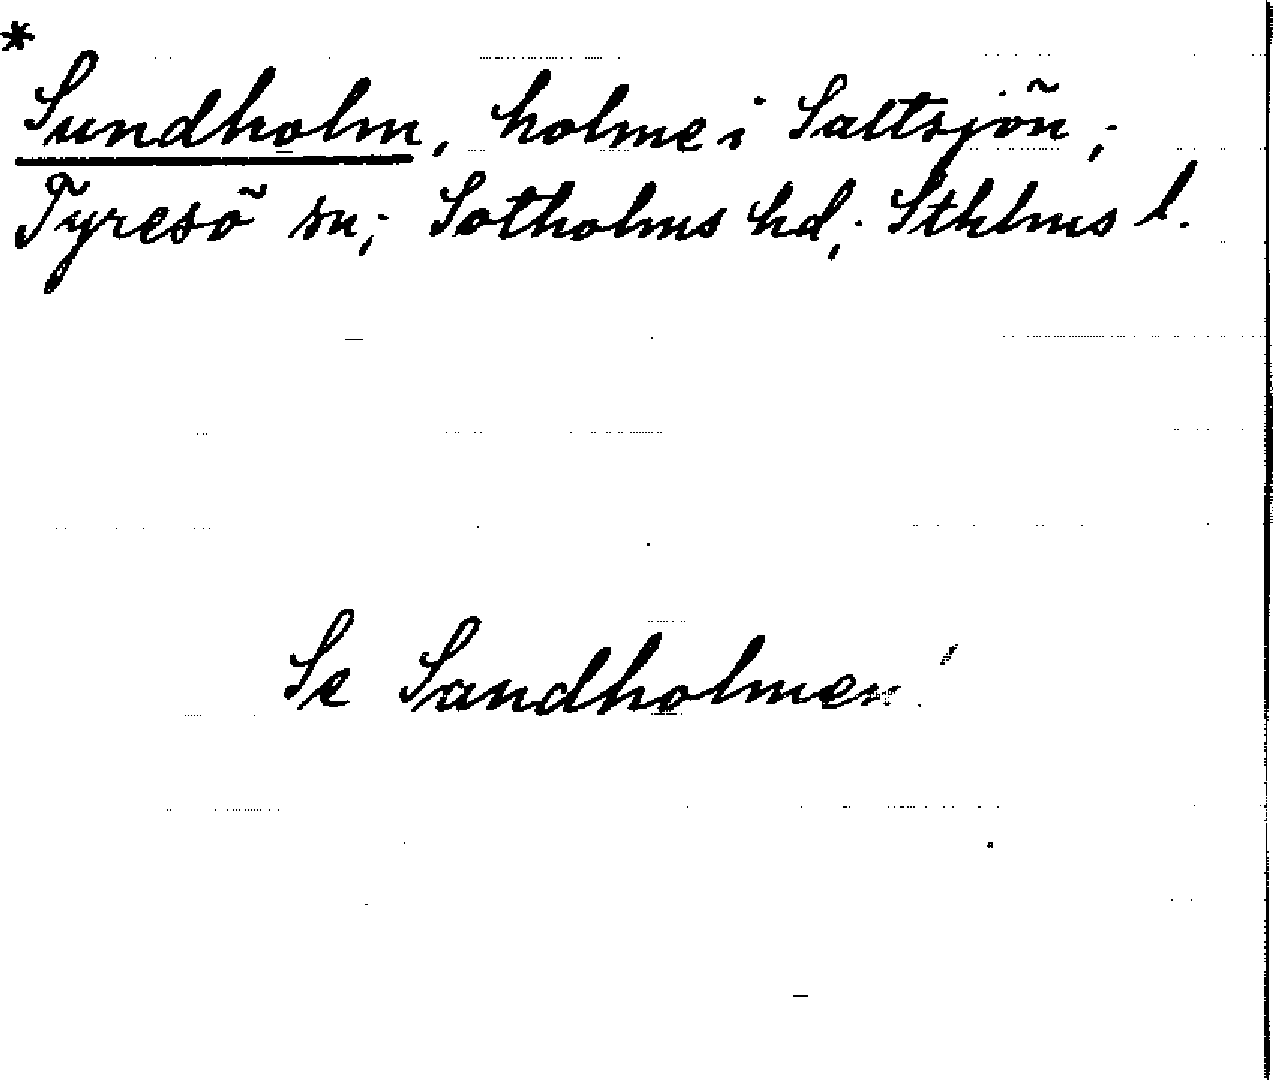 *
Sundholm, holme i Saltsjön;
Tyresö sn; Sotholms hd; Sthlms l.
Se Sandholmen!